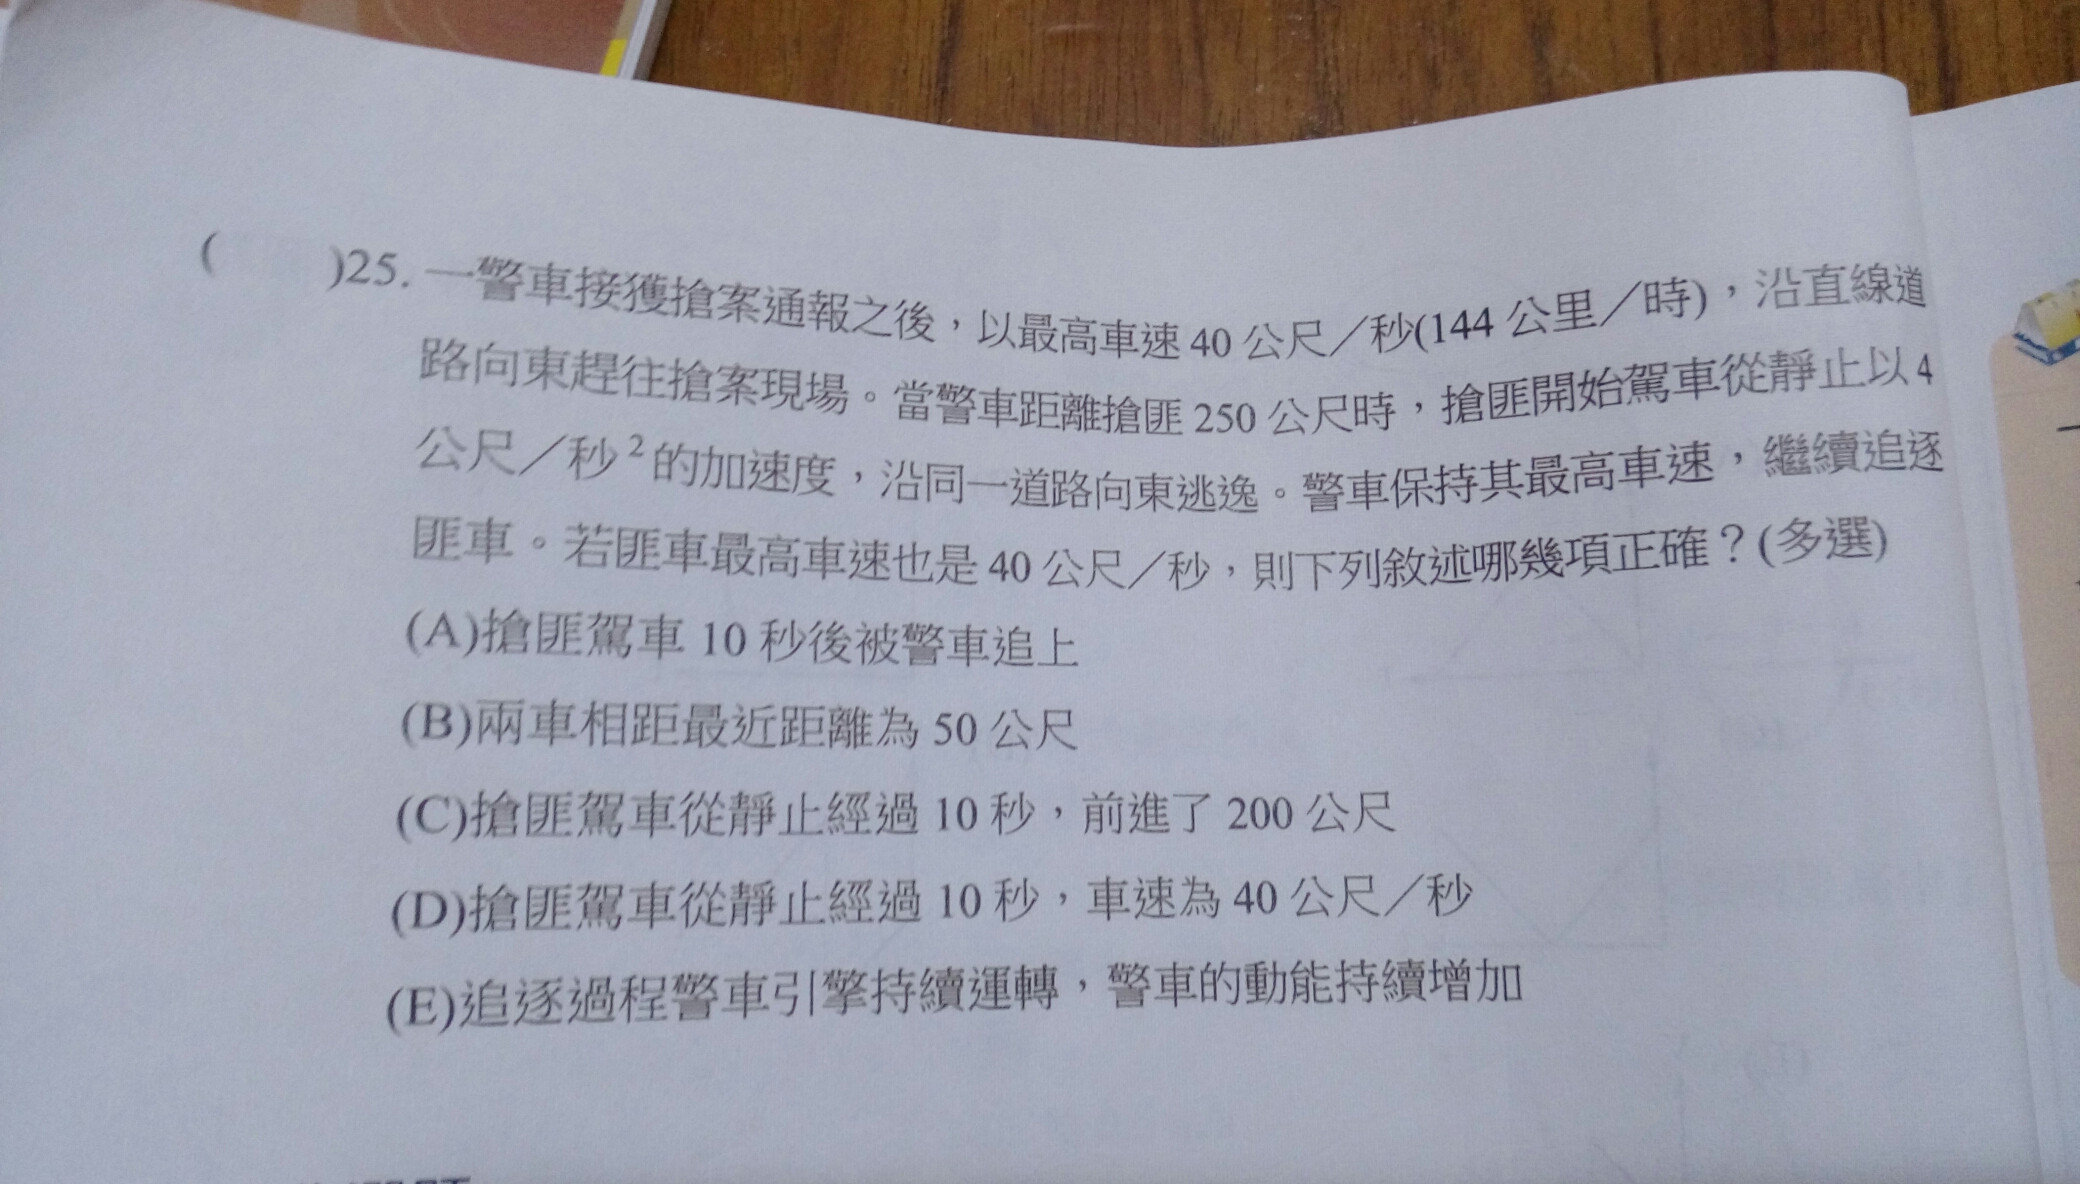 ( )25. 一警車接獲搶案通報之後，以最高車速 40 公尺／秒(144 公里／時)，沿直線道
路向東趕往搶案現場。當警車距離搶匪 250 公尺時，搶匪開始駕車從靜止以 4
公尺／秒² 的加速度，沿同一道路向東逃逸。警車保持其最高車速，繼續追逐
匪車。若匪車最高車速也是 40 公尺／秒，則下列敘述哪幾項正確？(多選)
(A)搶匪駕車 10 秒後被警車追上
(B)兩車相距最近距離為 50 公尺
(C)搶匪駕車從靜止經過 10 秒，前進了 200 公尺
(D)搶匪駕車從靜止經過 10 秒，車速為 40 公尺／秒
(E)追逐過程警車引擎持續運轉，警車的動能持續增加